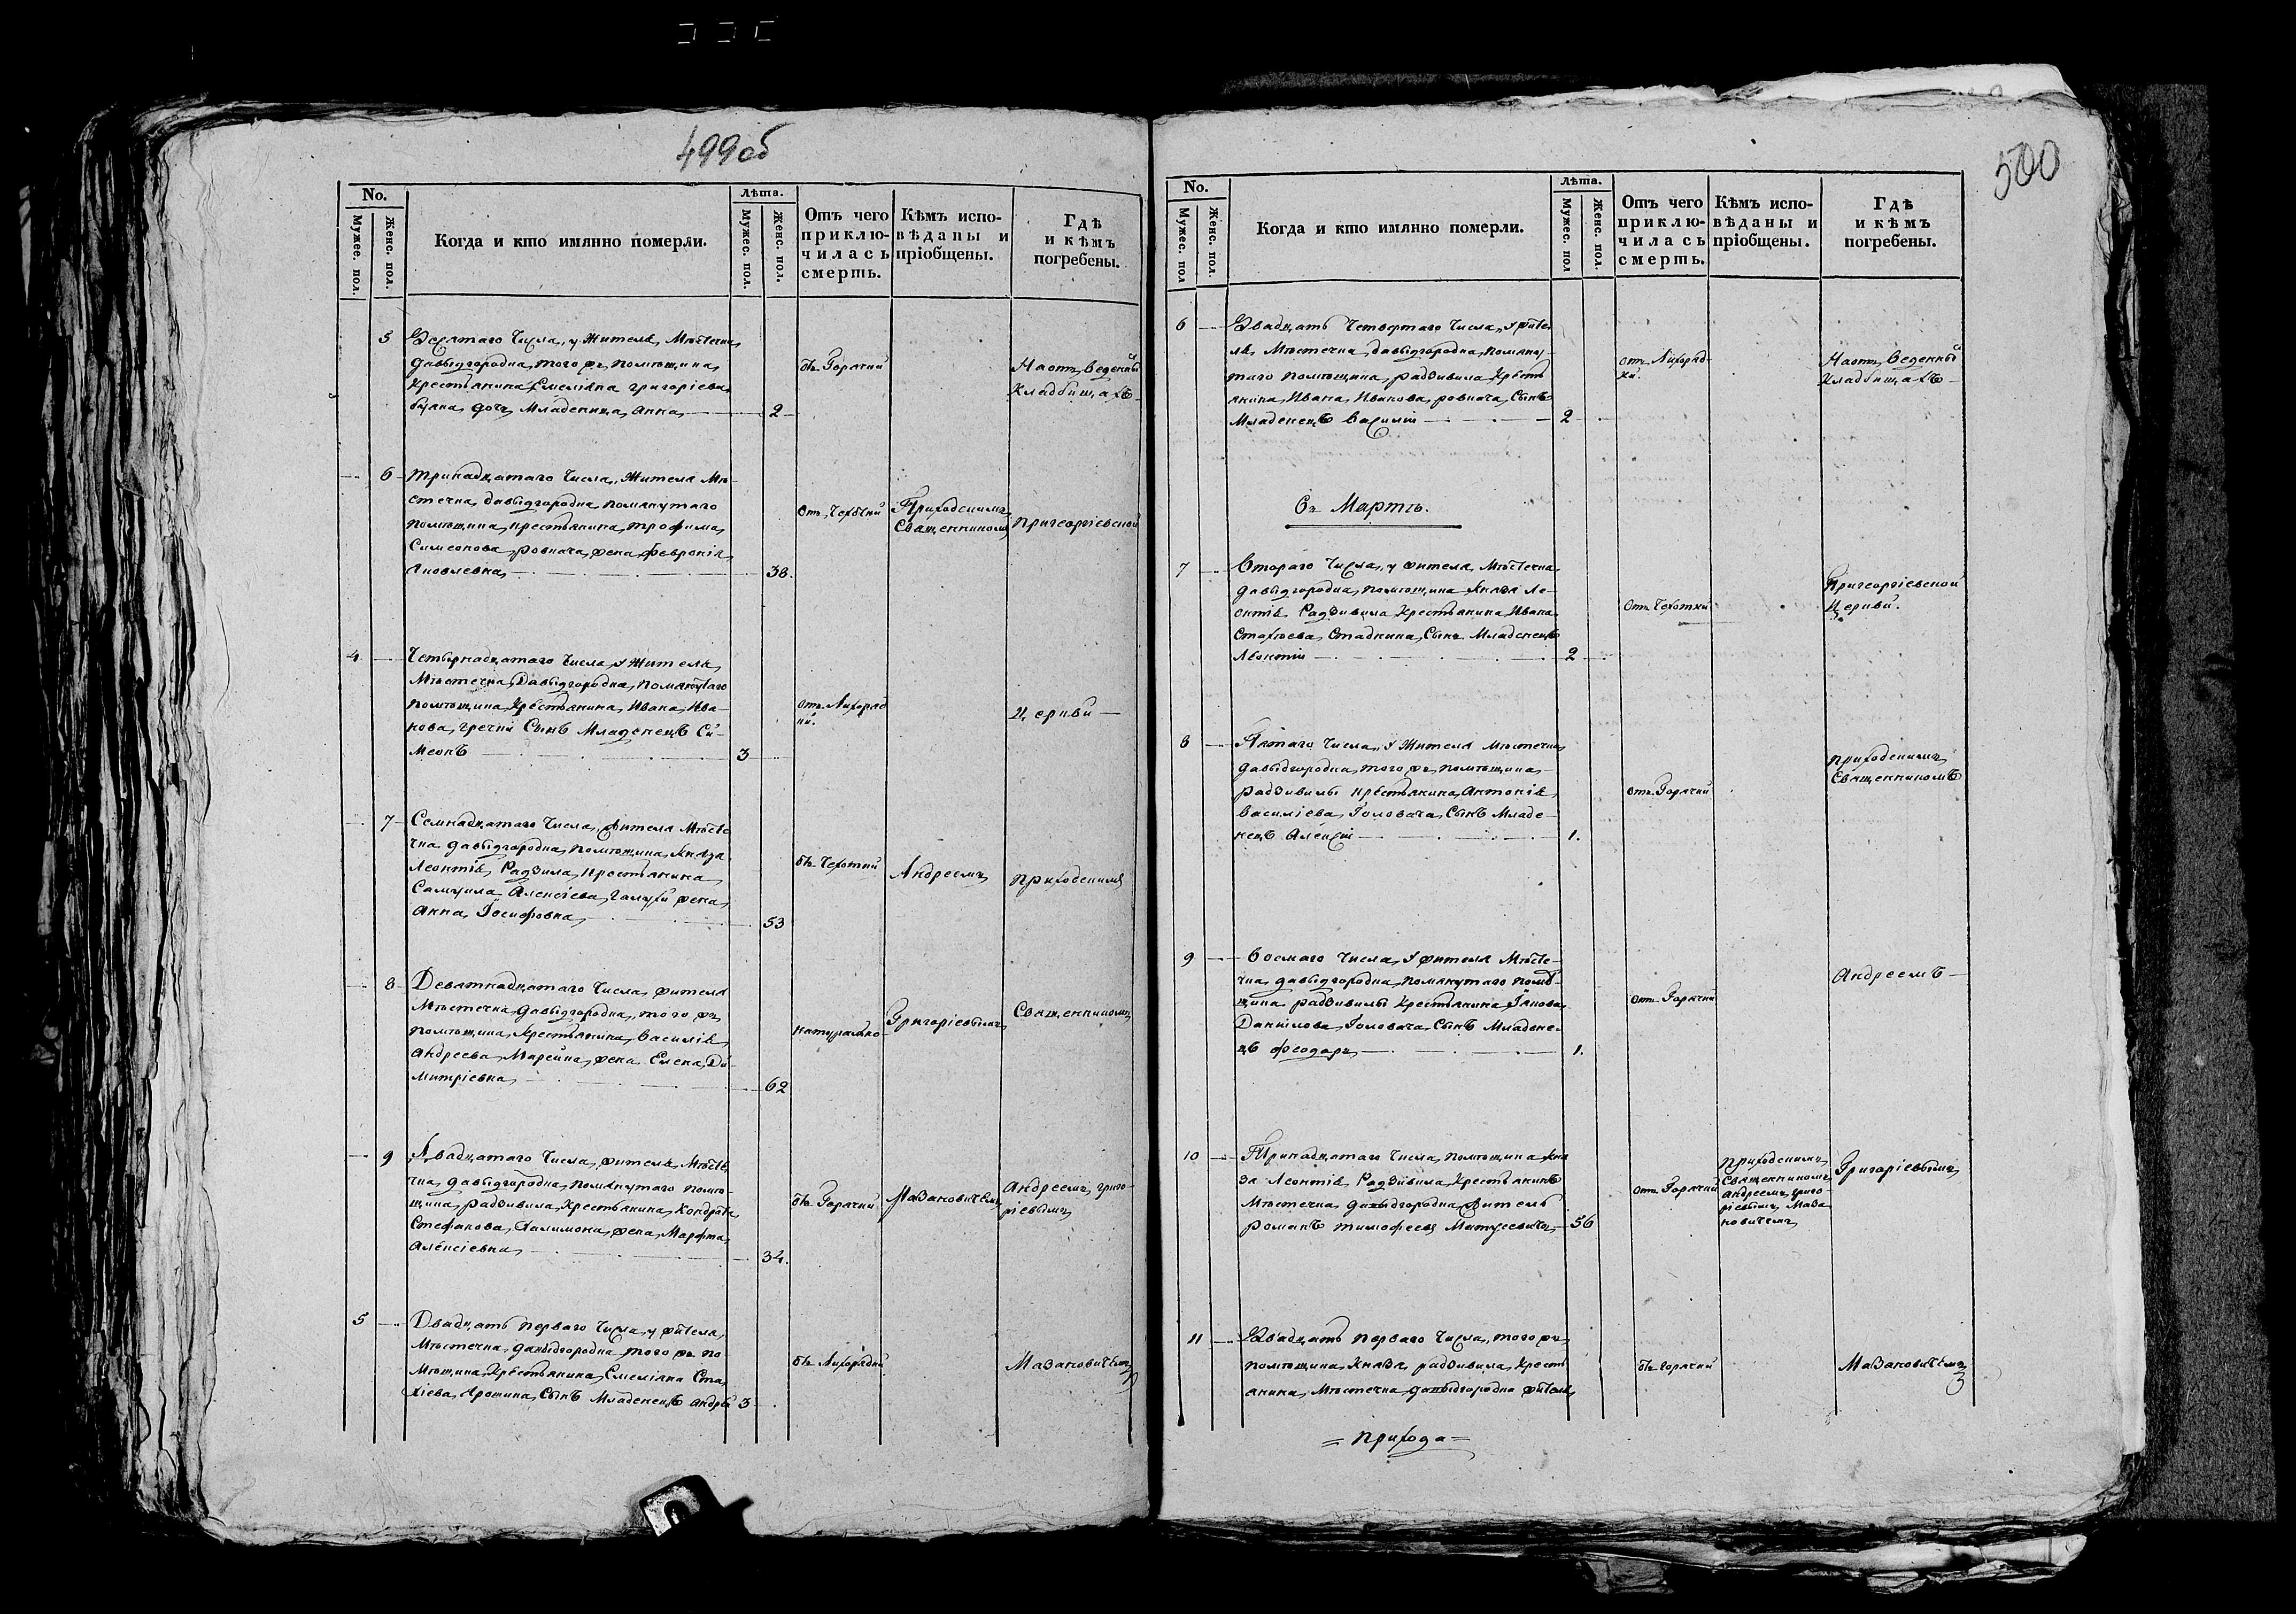 499об
No.
Мужес. пол.
Женс. пол.
Когда и кто имянно померли.
Лѣта.
Мужес. пол.
Женс. пол.
Отъ чего приклю-
чилась смерть.
Кѣмъ испо-
вѣданы и
пріобщены.
Гдѣ
и кѣмъ
погребены.
5 Десятаго Числа, у Жителя, Мѣстечка
Давыдгородка, того жъ помѣщика
Крестьянина, Емеліяна григоріева
дочь Младеница, Анна 2
отъ Горячки
На отъ веденныхъ
Кладбищахъ
6 Тринадцатаго Числа, Жителя Мѣ-
стечка, давыдгородка помянутаго
помѣщика, крестьянина, трофима,
Симеонова, ровнача, жена Февронія
Яковлевна, 38.
отъ Чехотки
Приходскимъ
Священникомъ
при георгіевской
4 Четырнадцатаго Числа, у Жителя
Мѣстечка, Давыдгородка, помянутаго
помѣщика, Крестьянина, Ивана, Ива-
нова, гречки Сынъ Младенецъ Си-
меонъ 3
отъ Лихорад
ки.
Церкви
7 Семнадцатаго Числа, жителя Мѣсте
чка давыдгородка, помѣщика, Князя
Леонтія, Радзила, крестьянина
Самуила Алексіева, жена
Анна Іосифовна, 53
отъ Чехотки
Андреемъ
приходскимъ
8 Девятнадцатаго Числа, жителя
Мѣстечка, давыдгородка, того жъ
помѣщика, Крестьянина, Василія
Андреева, Марейка, жена Елена, Ди-
митріевна, 62
натурально
Григоріевымъ
Священникомъ
9 Двадцатаго Числа, жителя, Мѣсте
чка, давыдгородка, помянутаго помѣ-
щика, радзивила, Крестьянина, Кондрата
Стефанова, Филимона, жена, Марфа,
Алексіевна, 34.
отъ Горячки
Мазановичемъ
Андреемъ, григо-
ріевымъ
5 Двадцать перваго Числа, у жителя,
Мѣстечка, давыдгородка того жъ по-
мѣщика, Крестьянина, Емеліяна Ста
хіева, Ярошика, Сынъ Младенецъ Андрѣй 3
отъ Лихорадки
Мазановичемъ
500
No.
Мужес. пол
Женс. пол.
Когда и кто имянно померли.
Лѣта.
Мужес. пол
Женс. пол.
Отъ чего
приклю-
чилась
смерть.
Кѣмъ испо-
вѣданы и
пріобщены.
Гдѣ
и кѣмъ
погребены.
6 Двадцать Четвертаго Числа, у жите
ля Мѣстечка, давыдгородка, помяну-
таго помѣщика, радзивила, Кресть
янина, Ивана, Иванова, ровнача, Сынъ
Младенецъ Василій 2
отъ Лихорад-
ки.
На отъ веденныхъ
Кладбищахъ
Въ Мартѣ.
7 Втораго Числа, у жителя, Мѣстечка,
давыдгородка, помѣщика Князя Ле-
онтія Радзивила Крестьянина, Ивана
Стахіева, Стадника, Сынъ Младенецъ
Леонтій 2
отъ Чехотки
При георгіевской
Церкви.
8 Пятаго Числа, у Жителя Мѣстечка,
давыдгородка, того жъ помѣщика
радзивилы крестьянина, Антонія
василіева, Головача, Сынъ Младе-
нецъ Алексій 1.
отъ Горячки
приходскимъ
Священникомъ
9 Восмаго Числа, у жителя Мѣсте-
чка, давыдгородка, помянутаго помѣ-
щика радзивилы Крестьянина Якова
Данилова, Головача, Сынъ Младене-
цъ феодоръ 1.
отъ Горячки
Андреемъ
10 Тринадцатаго Числа, помѣщика Кня
за Леонтія Радзивила, Крестьянинъ
Мѣстечка давыдгородка, жителъ
романъ тимофеевъ Матусевичъ 56
отъ Горячки
приходскимъ
Священникомъ
Андреемъ, григо-
ріевымъ Маза
новичемъ
Григоріевымъ
11 Двадцать перваго Числа, того жъ
помѣщика, Князя, радзивила, Кресть
янина, Мѣстечка давыдгородка жителя
отъ горячки
Мазановичемъ
= прихода =